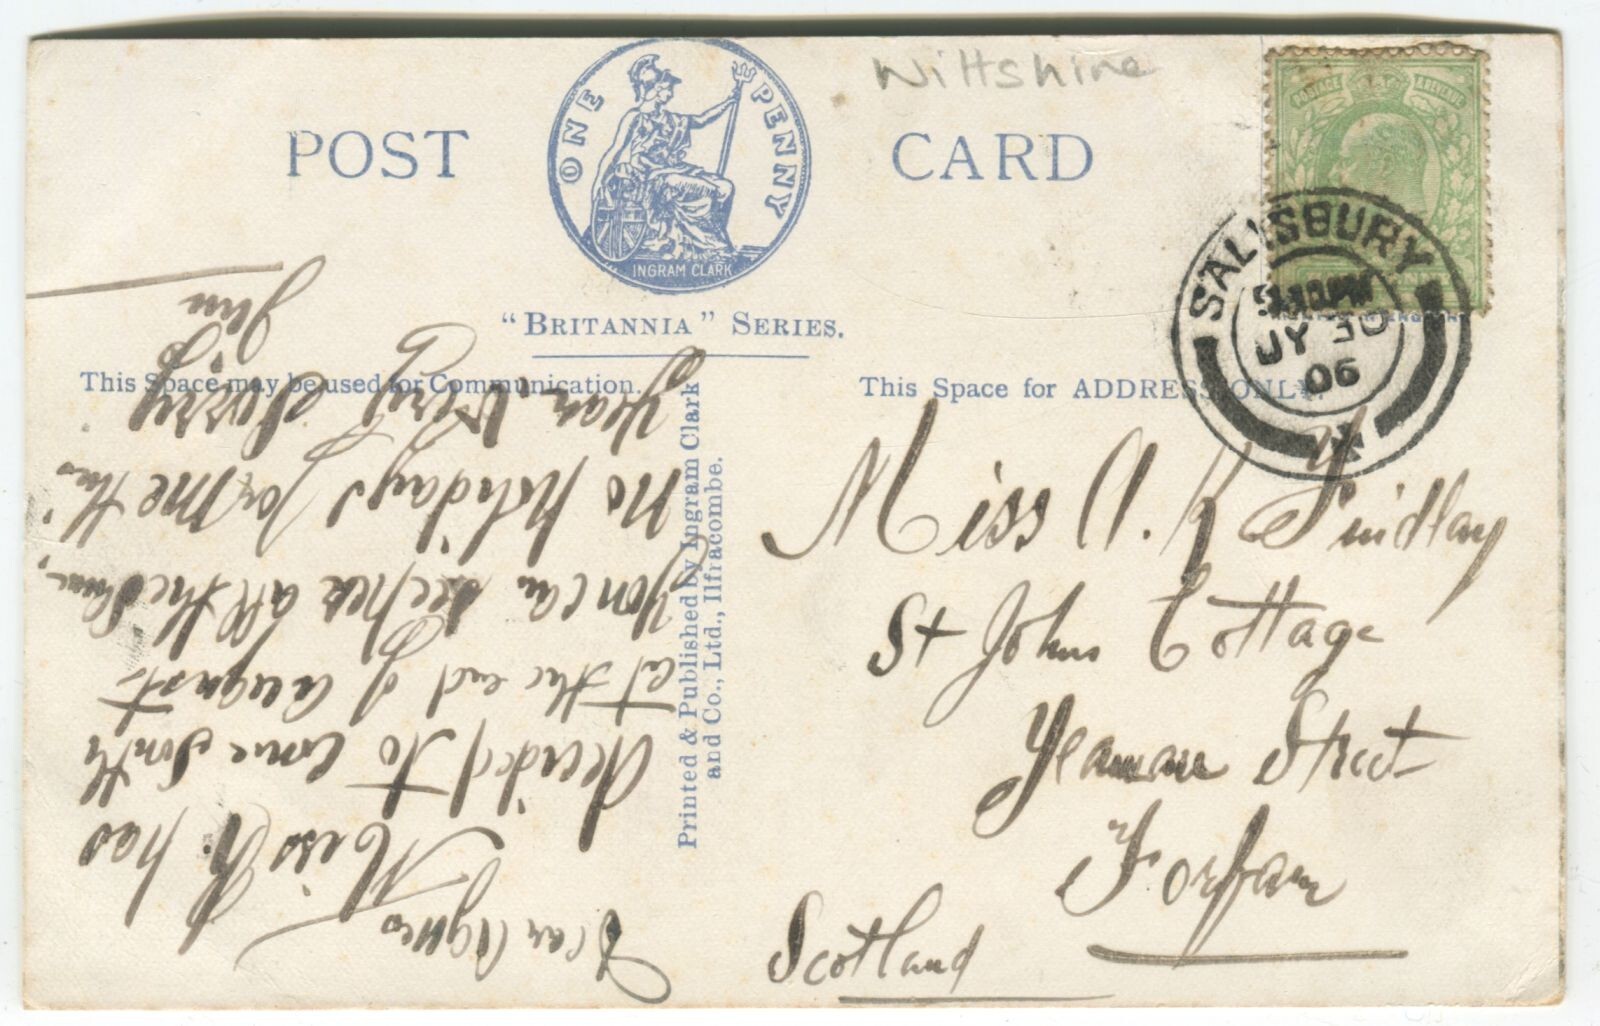 Wiltshire
POST CARD
ONE PENNY
INGRAM CLARK
"BRITANNIA" SERIES.
POSTAGE & REVENUE
SALISBURY
JY 30
06
This Space may be used for Communication.
This Space for ADDRESS ONLY.
Printed & Published by Ingram Clark
and Co., Ltd., Ilfracombe.
Miss A. K Findlay
St Johns Cottage
Yeaman Street
Forfar
Scotland
Dear Agnes
Miss R. has
decided to come South
at the end of August
you can see her all the same,
no holidays for me this
year. Very Sorry